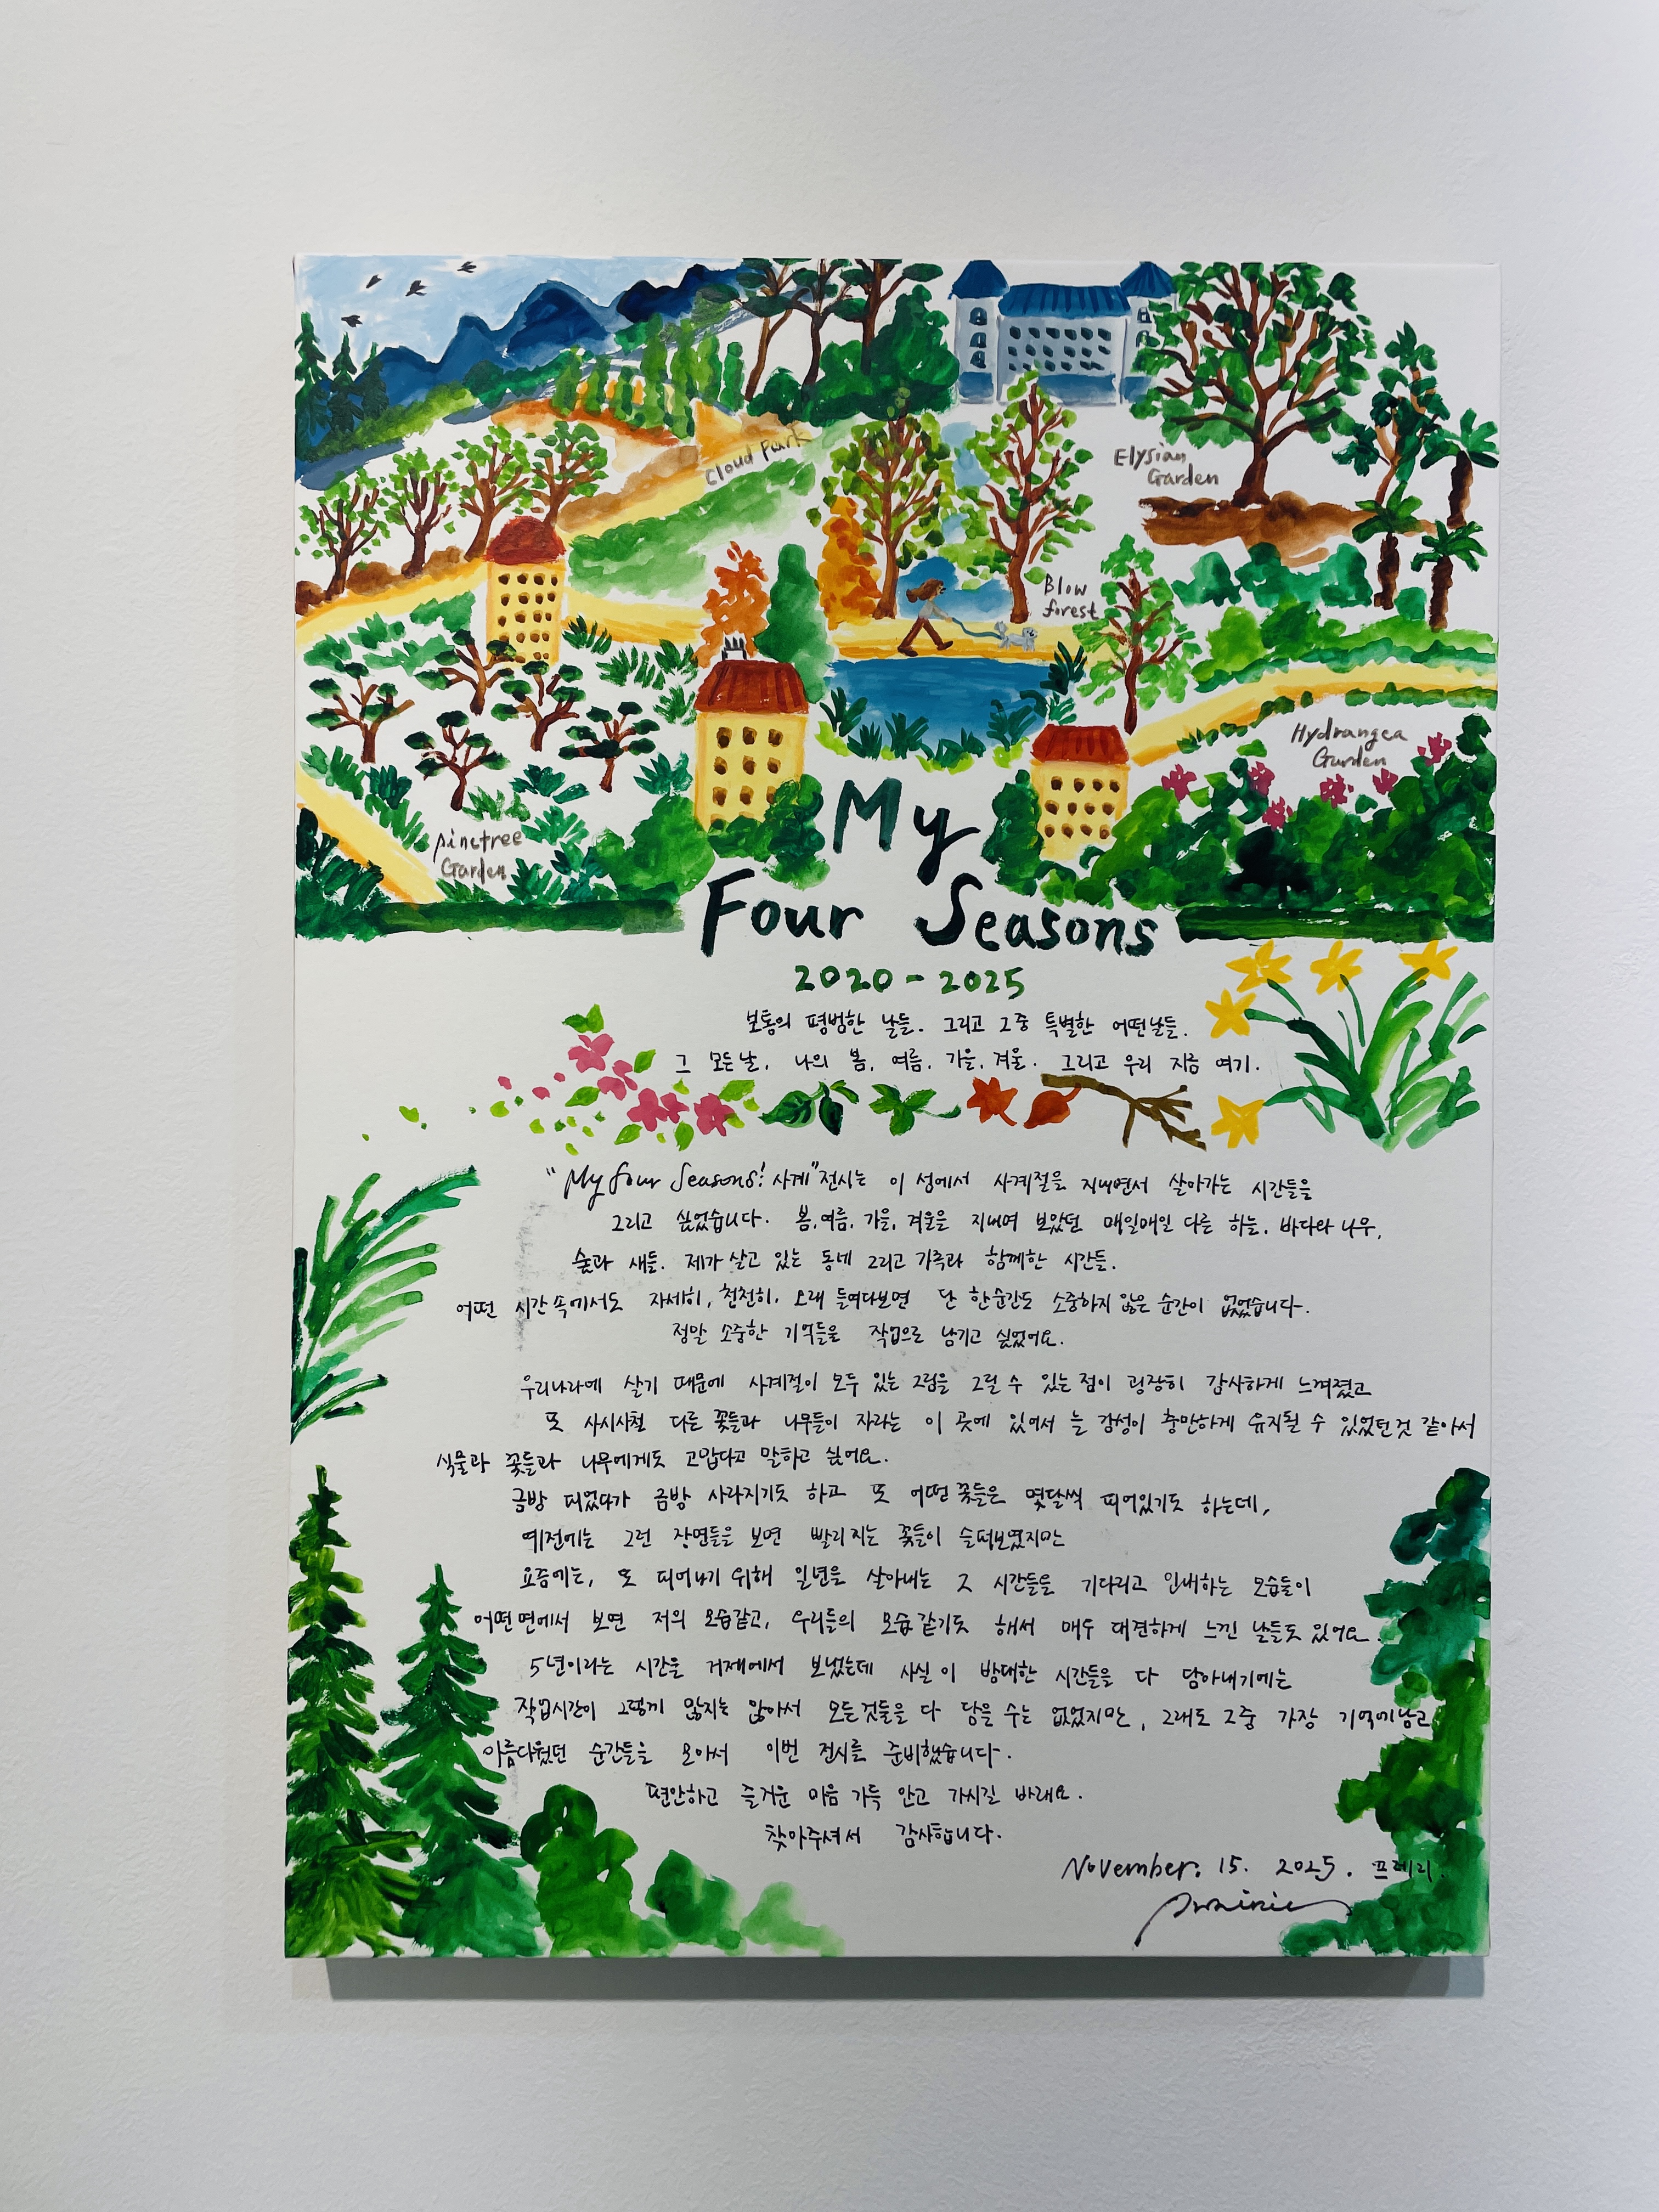 Cloud Park
Elysian
Garden
Blow
forest
Hydrangea
Garden
pinetree
Garden
My
Four Seasons
2020-2025
보통의 평범한 날들. 그리고 그중 특별한 어떤날들.
그 모든날, 나의 봄, 여름, 가을, 겨울. 그리고 우리 지금 여기.
"My four Seasons: 사계" 전시는 이 섬에서 사계절을 지내면서 살아가는 시간들을
그리고 싶었습니다. 봄, 여름, 가을, 겨울을 지내며 보았던 매일매일 다른 하늘, 바다와 나무,
숲과 새들. 제가 살고 있는 동네 그리고 가족과 함께한 시간들.
어떤 시간 속에서도 자세히, 천천히, 오래 들여다보면 단 한순간도 소중하지 않은 순간이 없었습니다.
정말 소중한 기억들을 작업으로 남기고 싶었어요.
우리나라에 살기 때문에 사계절이 모두 있는 그림을 그릴 수 있는 점이 굉장히 감사하게 느껴졌고
또 사시사철 다른 꽃들과 나무들이 자라는 이 곳에 있어서 늘 감성이 충만하게 유지될 수 있었던것 같아서
식물과 꽃들과 나무에게도 고맙다고 말하고 싶어요.
금방 피었다가 금방 사라지기도 하고 또 어떤 꽃들은 몇달씩 피어있기도 하는데,
예전에는 그런 장면들을 보면 빨리 지는 꽃들이 슬퍼보였지만
요즘에는, 또 피어나기 위해 일년을 살아내는 그 시간들을 기다리고 인내하는 모습들이
어떤면에서 보면 저의 모습같고, 우리들의 모습 같기도 해서 매우 대견하게 느낀 날들도 있어요.
5년이라는 시간을 거제에서 보냈는데 사실 이 방대한 시간들을 다 담아내기에는
작업시간이 그렇게 많지는 않아서 모든것들을 다 담을 수는 없었지만, 그래도 그중 가장 기억에남고
아름다웠던 순간들을 모아서 이번 전시를 준비했습니다.
편안하고 즐거운 마음 가득 안고 가시길 바래요.
찾아주셔서 감사합니다.
November. 15. 2025. 프레리.
Prairie